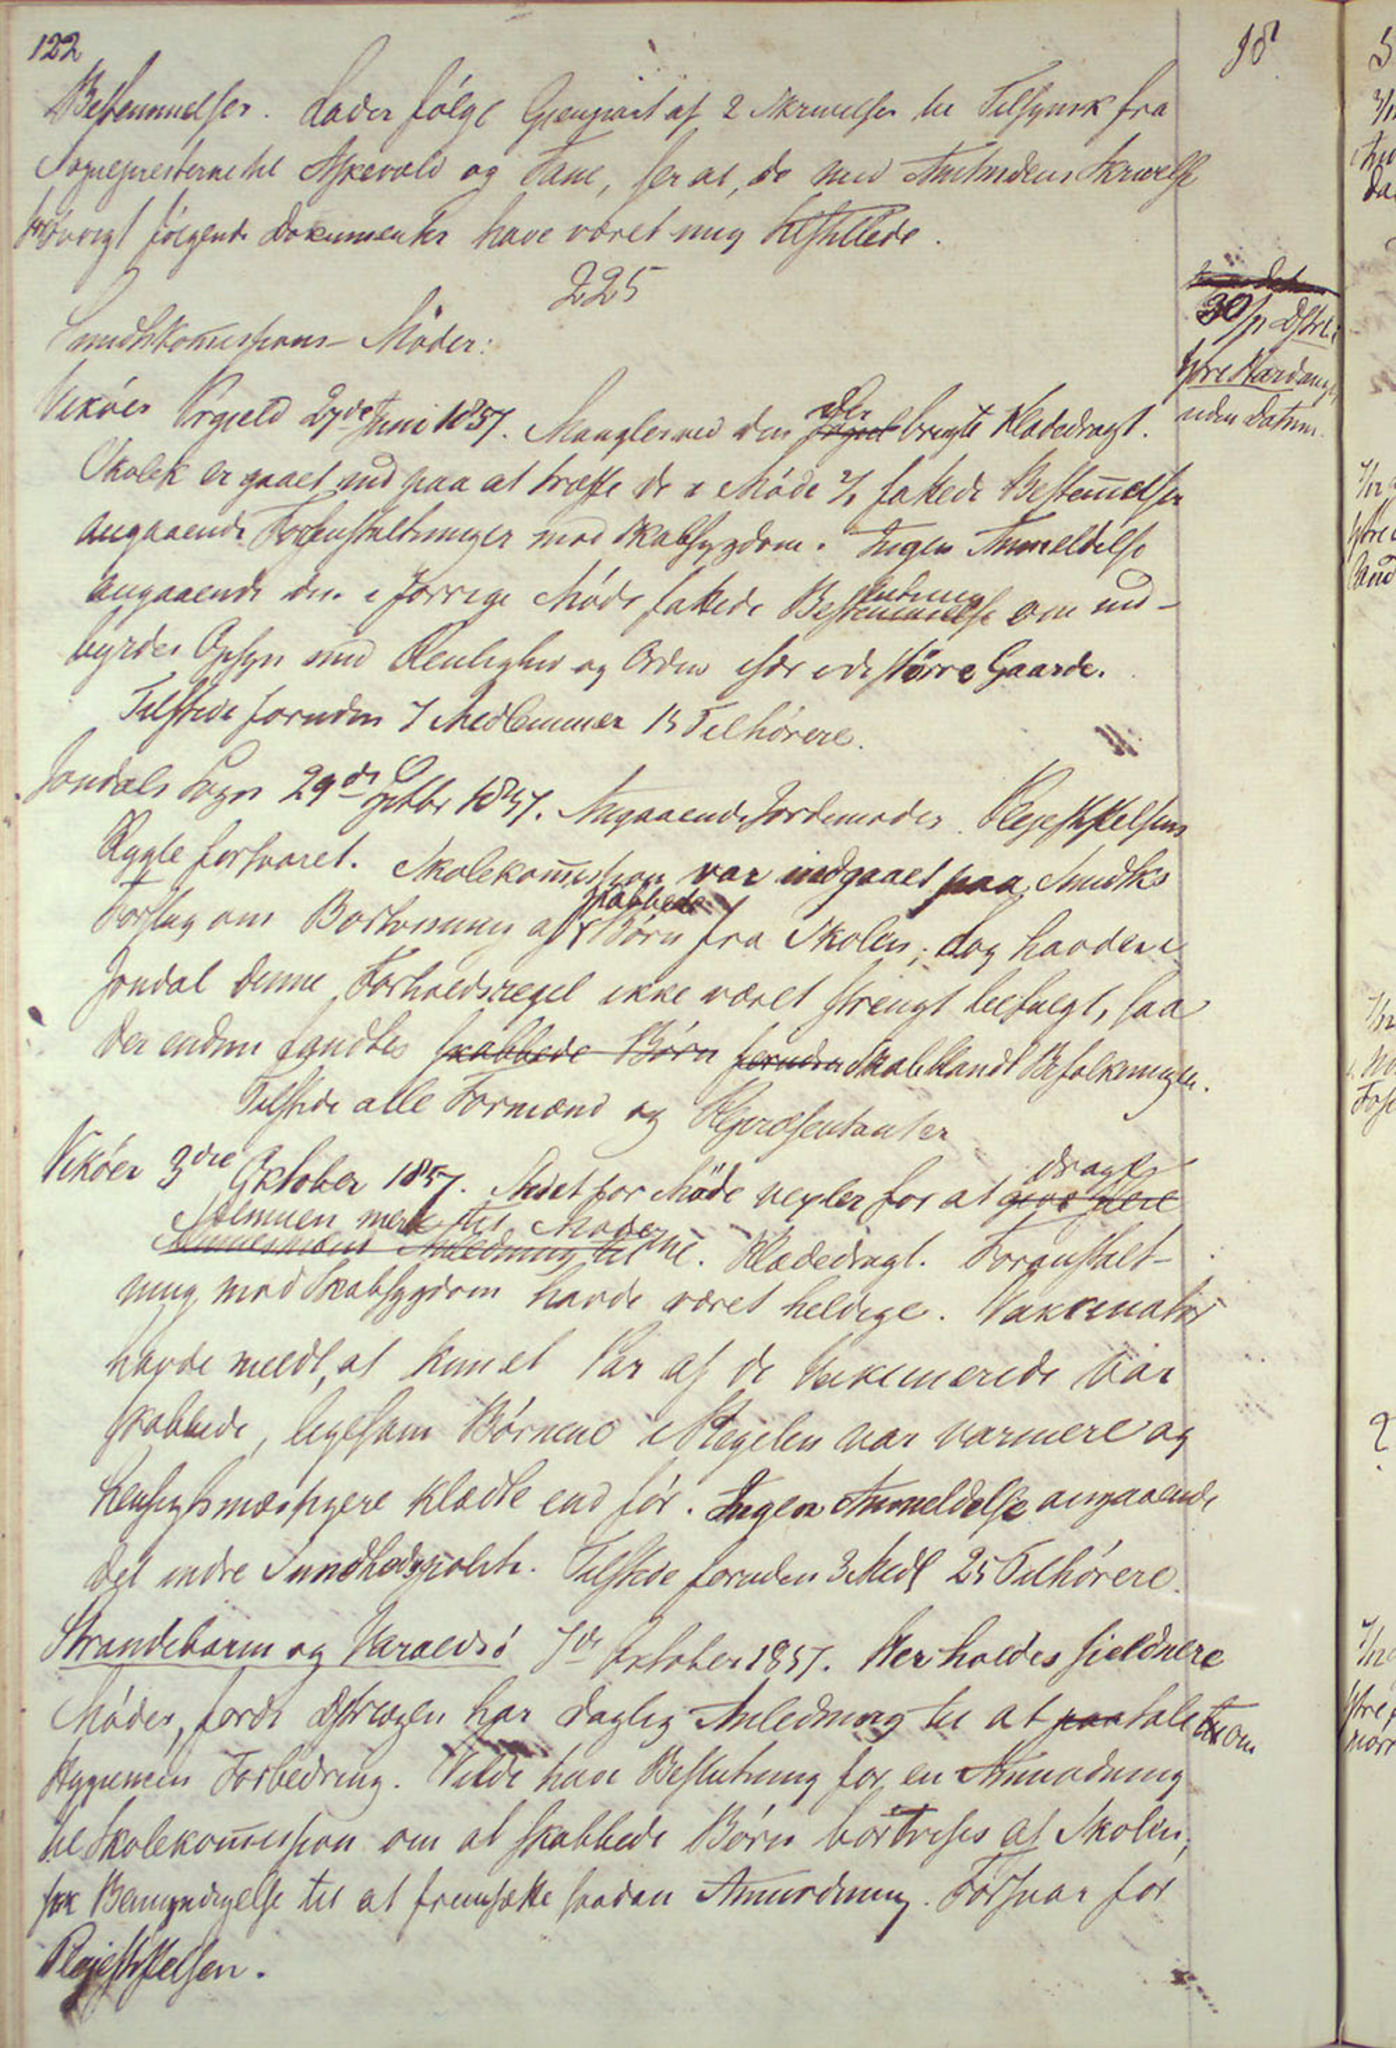 122
18
Bestemmelser. Lader følge Gjenpart af 2 Skrivelser til Tilsynsk fra
Sognepresterne til Askevold og Fane, ser at de med Amtmdens Skrivelse
forøvrigt følgende Dokumenter have været mig tilstillede.
225
Sundhskomissions Møder:
30/11 Dstrl.
Ytre Hardang,
uden Datum.
Vikøer Prgjeld 27de Juni 1857. Mangler ved den der brugte Klædedragt.
Skolek er gaaet ind paa at træffe de i Møde fattede Bestemelser
angaaende Foranstaltninger mod Skabsygdom. Ingen Anmeldelse
angaaende den i forrige Møde fattede Beslutning om ind-
byrdes Opsyn med Renlighed og Orden især i de større Gaarde.
Tilstede foruden 7 Medlemmer 15 Tilhørere.
Jondals Sogn 29de Septbr 1857. Angaaende Jordemoder. Plejestiftelsen
Rygte forsvaret. Skolekomission var indgaaet paa Sundhks
Forslag om Bortvisning af skabbede Børn fra Skolen; dog havde i
Jondal denne Forholdsregel ikke været strengt befulgt, saa
der endnu fandtes skabbede Børn foruden Skab blandt Befolkningen.
Tilstede alle Formænd og Repræsentanter
Vikøer 3die Oktober 1857. Stedet for Møde vexler for at drage
Almuen mere til Møder
ne. Klædedragt. Foranstalt-
ning mod Skabsygdom havde været heldige. Vakcinatør
havde meldt, at kun et Par af de Vakcinerede var
skabbede, ligesom Børnene i Regelen var varmere og
hensigtsmæssigere klædte end før. Ingen Anmeldelse angaaende
det indre Sundhedspoliti. Tilstede foruden 3 Medl 25 Tilhørere.
Strandebarm og Varaldsø 7de Oktober 1857. Her holdes sjeldnere
Møder, fordi Dstrlægen har daglig Anledning til at tale om
Hygieinens Forbedring. Vilde have Beslutning for en Anmodning
til Skolekomission om at skabbede Børn bortvises af Skolen;
fik Bemyndigelse til at fremsætte saadan Anmodning. Forsvar for
Plejestiftelsen.